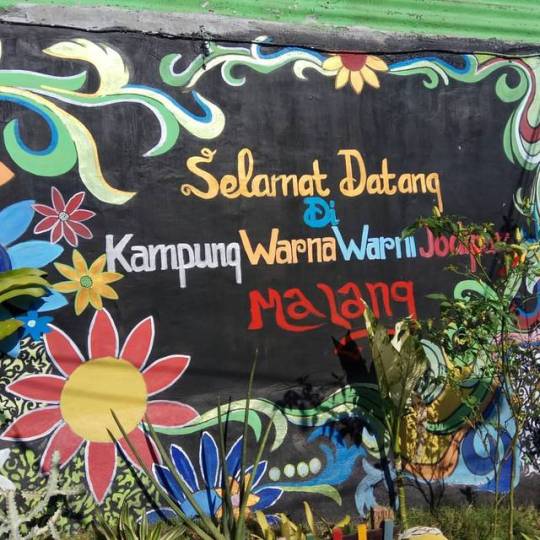 Selamat Datang
Di
Kampung Warna Warni Jodipan
Malang